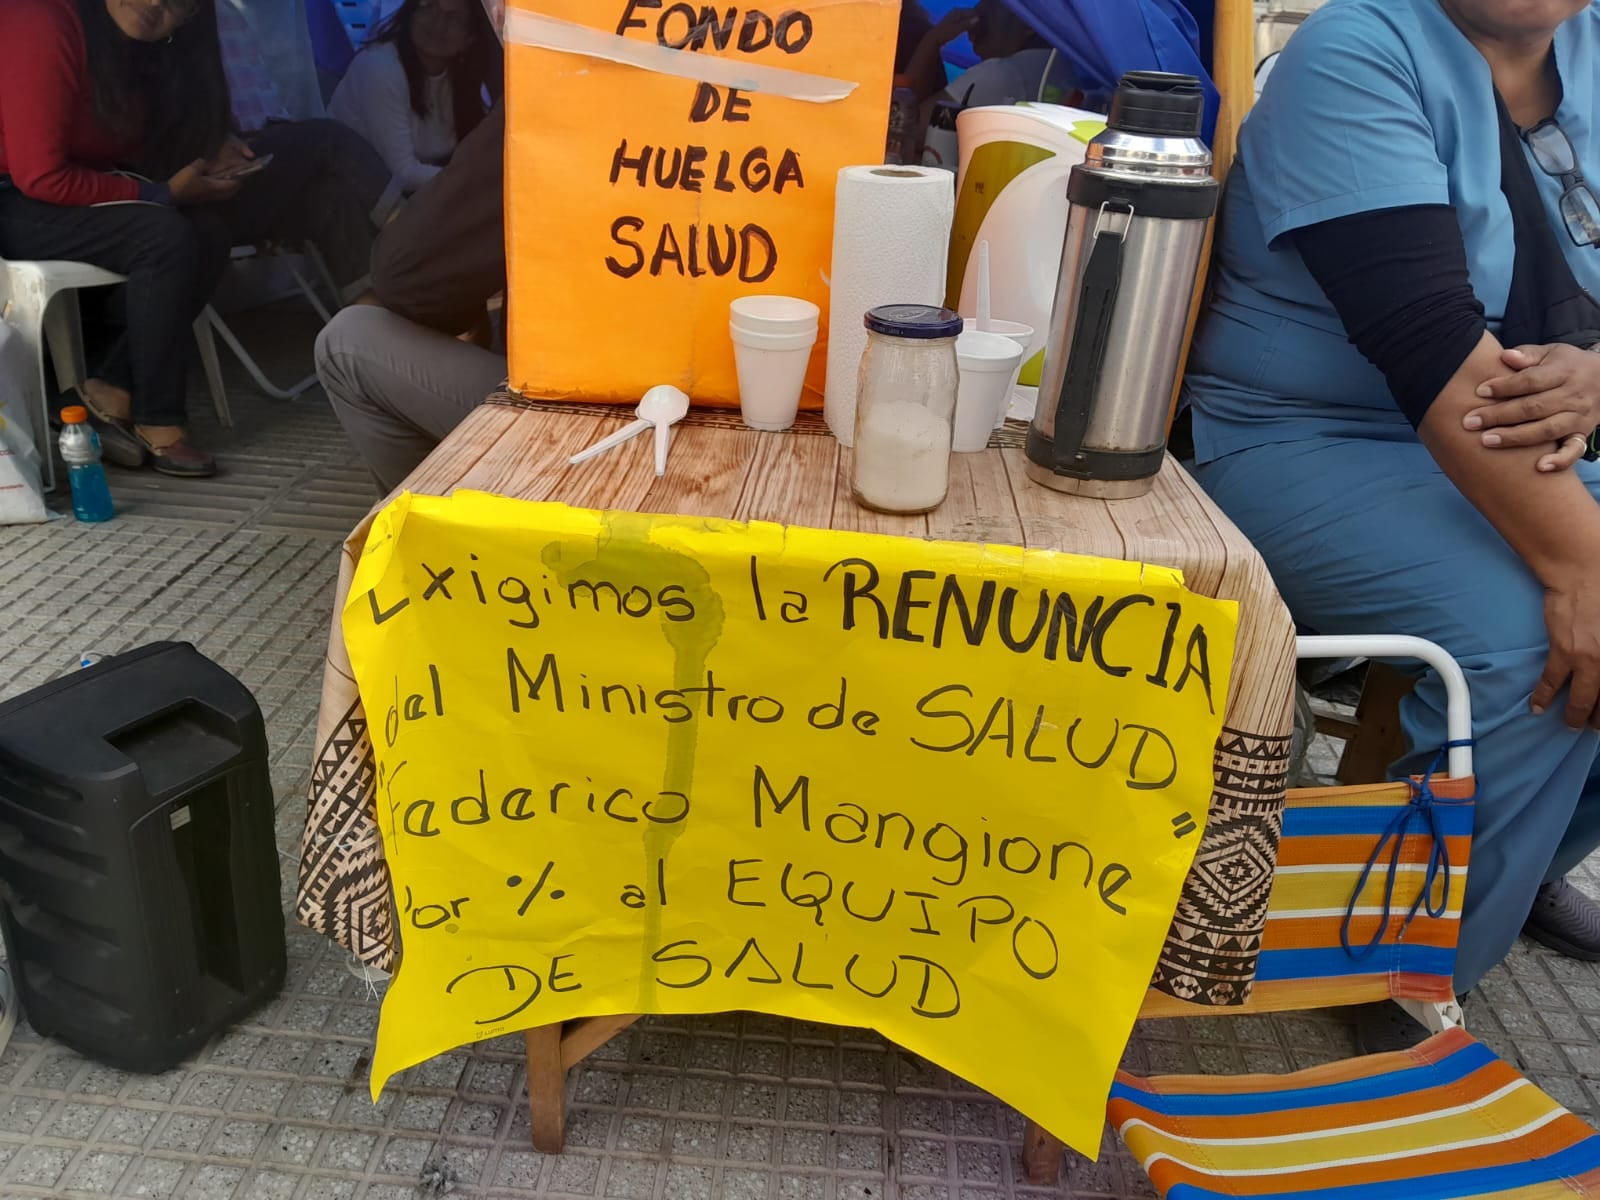 FONDO
DE
HUELGA
SALUD
Exigimos la RENUNCIA
del Ministro de SALUD
"Federico Mangione"
Por % al EQUIPO
DE SALUD